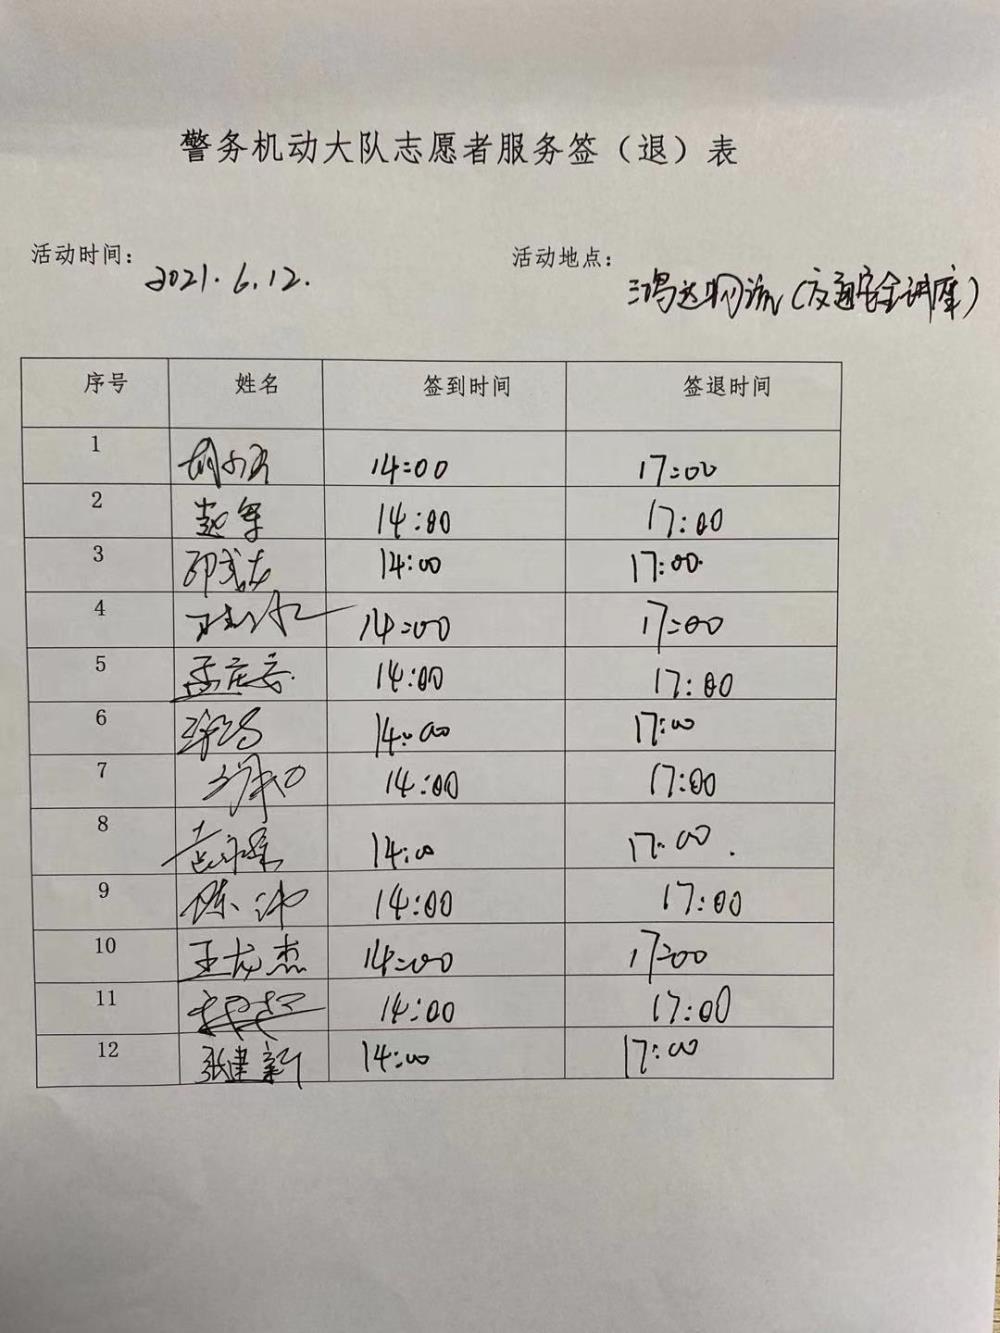 警务机动大队志愿者服务签（退）表
活动时间: 2021.6.12.
活动地点: 鸿达物流(交通安全讲座)
序号 姓名 签到时间 签退时间
1 14:00 17:00
2 赵军 14:00 17:00
3 14:00 17:00
4 14:00 17:00
5 14:00 17:00
6 14:00 17:00
7 14:00 17:00
8 14:00 17:00.
9 陈沛 14:00 17:00
10 王龙杰 14:00 17:00
11 14:00 17:00
12 张建新 14:00 17:00